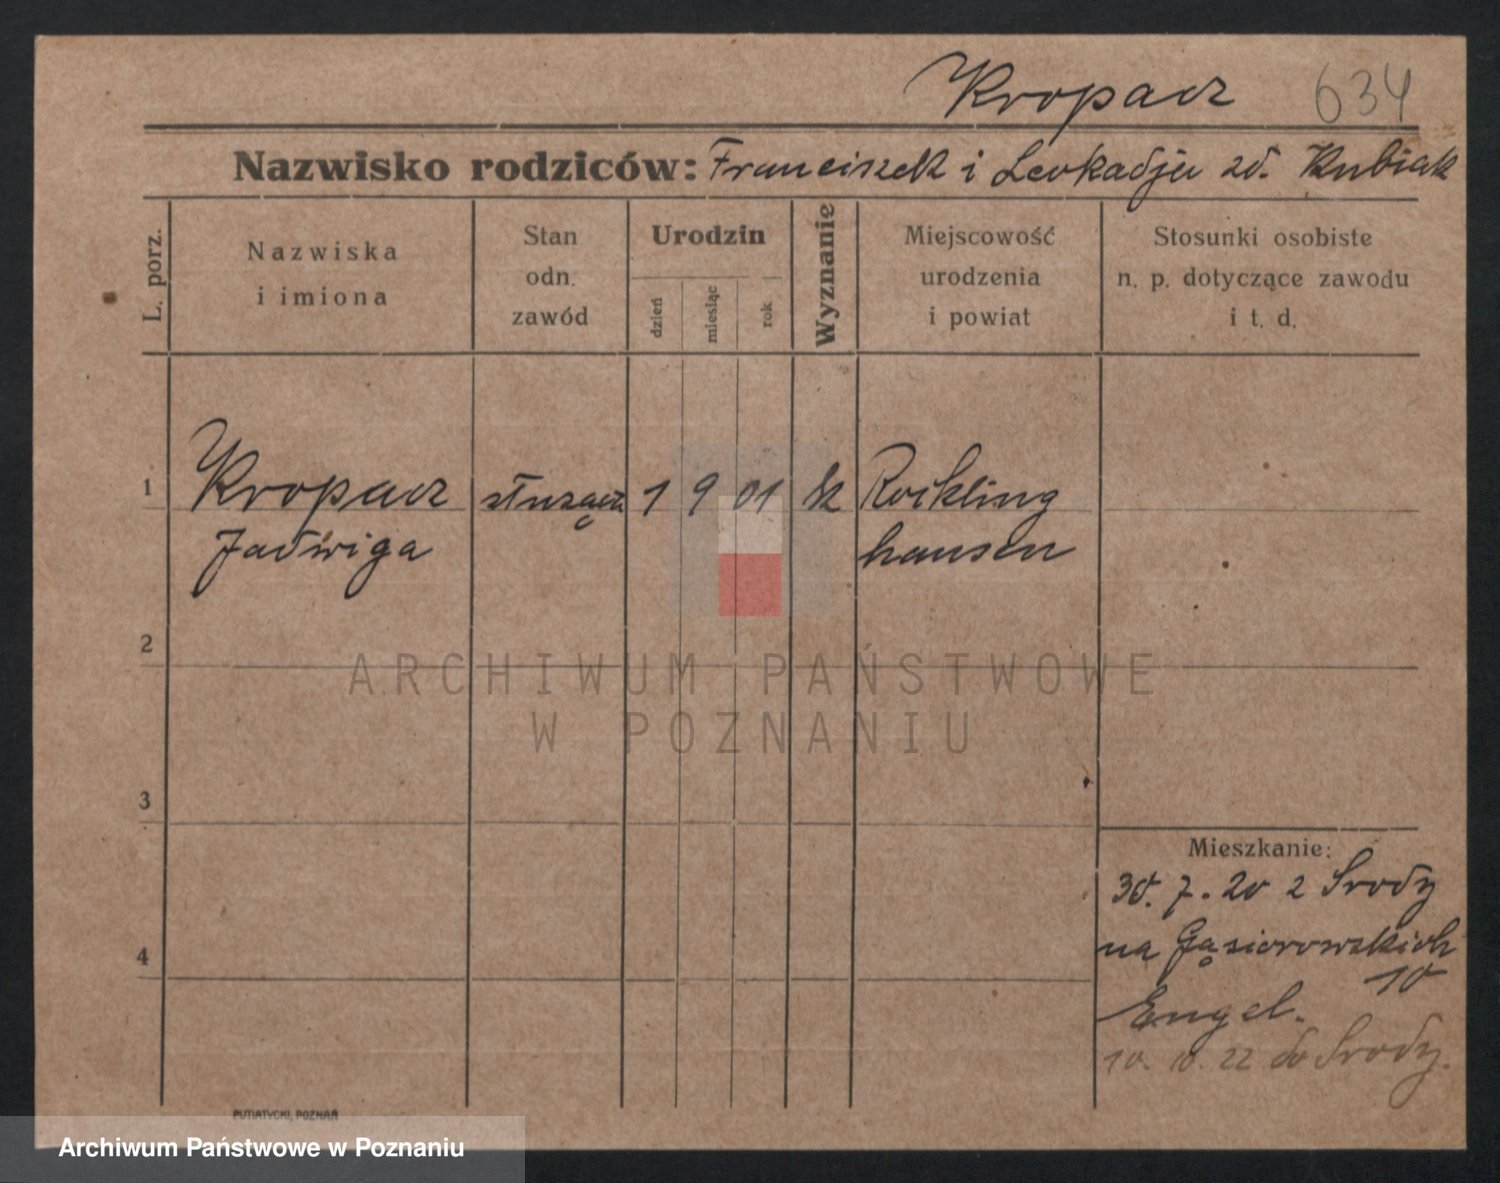 Kropacz 634
Nazwisko rodziców: Franciszek i Leokadja zd. Kubiak
L. porz.
Nazwiska
i imiona
Stan
odn.
zawód
Urodzin
dzień
miesiąc
rok
Wyznanie
Miejscowość
urodzenia
i powiat
Stosunki osobiste
n. p. dotyczące zawodu
i t. d.
1 Kropacz służąca 1 9 01 k Rockling
Jadwiga hausen
2
ARCHIWUM PAŃSTWOWE
W POZNANIU
3
Mieszkanie:
30. 7. 20 z Środy
na Gąsiorowskich
4
10
Engel.
10. 10. 22 do Środy.
PUTIATYCKI, POZNAŃ
Archiwum Państwowe w Poznaniu